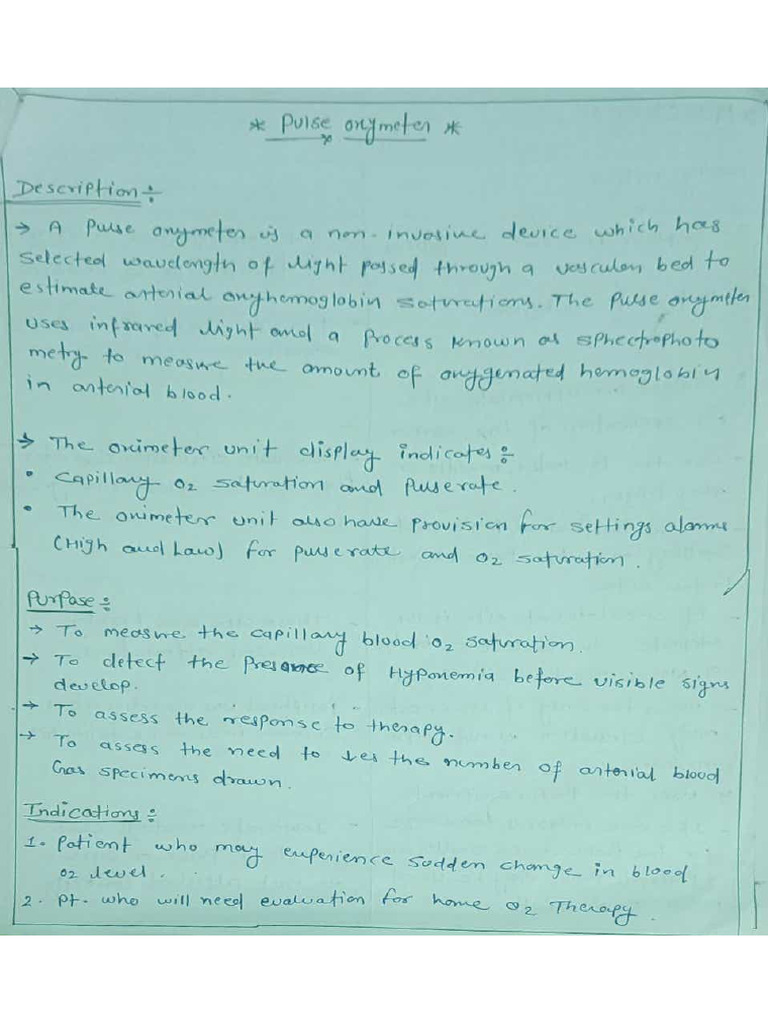 * Pulse oxymeter *
Description :-
→ A Pulse oxymeter is a non-invasive device which has
selected wavelength of light passed through a vascular bed to
estimate arterial oxyhemoglobin saturations. The Pulse oxymeter
uses infrared light and a Process known as sphectrophoto
metry to measure the amount of oxygenated hemoglobin
in arterial blood.
→ The oximeter unit display indicates :-
• Capillary O2 saturation and Pulse rate.
• The oximeter unit also have provision for settings alarms
(High and Law) for pulse rate and O2 saturation.
Purpase :-
→ To measure the capillary blood O2 saturation.
→ To detect the Presence of Hypoxemia before visible signs
develop.
→ To assess the response to therapy.
→ To assess the need to ↓es the number of arterial blood
Gas specimens drawn.
Indications :-
1. Patient who may experience sudden change in blood
O2 level.
2. Pt. who will need evaluation for home O2 Therapy.